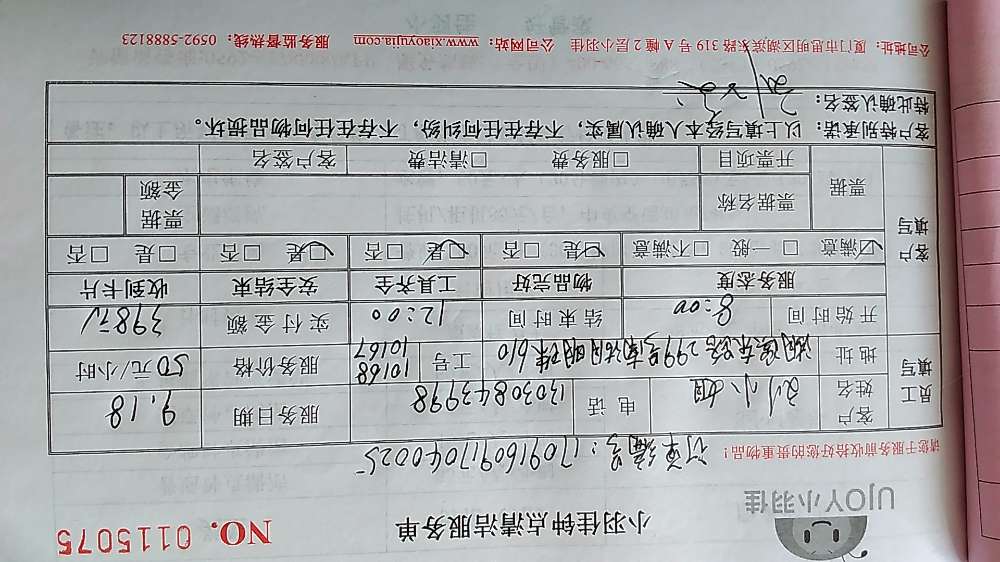 UJOY小羽佳
小羽佳钟点清洁服务单
NO. 0115075
请您于服务前收拾好您的贵重物品!
订单编号:1709160917040025
员工填写
客户姓名 刘小姐 电话 13030843998 服务日期 9.18
地址 湖滨东路299号南洁明珠610 工号 10168 10167 服务价格 50元/小时
开始时间 8:00 结束时间 12:00 实付金额 398元
客户填写
服务态度 物品完好 工具齐全 安全结束 收到卡片
☑满意 □一般 □不满意 ☑是 □否 ☑是 □否 ☑是 □否 □是 □否
票据 票据名称 票据金额
开票项目 □服务费 □清洁费 客户签名
客户特别承诺:以上填写经本人确认属实,不存在任何纠纷,不存在任何物品损坏。
特此确认签名:
公司地址:厦门市思明区湖滨东路 319 号 A 幢 2 层小羽佳 公司网站:www.xiaoyujia.com 服务监督热线:0592-5888123